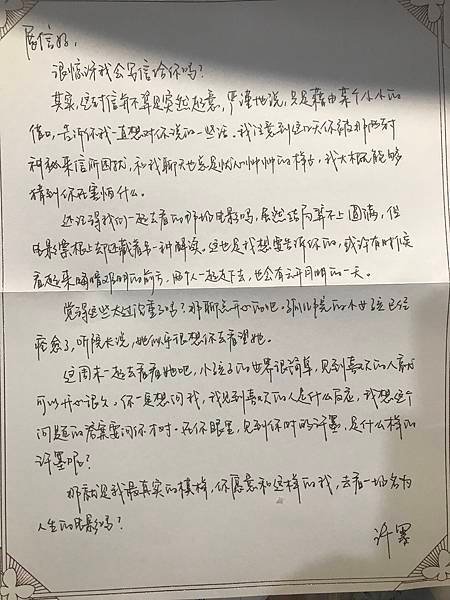 展信好，
很惊讶我会写信给你吗？
其实，这封信并不算是突然起意，严谨地说，只是藉由某个小小的
借口，告诉你我一直想对你说的一些话。我注意到这些天你被那两封
神秘来信所困扰，和我聊天也总是忧心忡忡的样子，我大概能够
猜到你在害怕什么。
还记得我们一起去看的那场电影吗，虽然结局算不上圆满，但
电影票根上却还藏着另一种解读。这也是我想要告诉你的，或许有时候
看起来晦暗艰明的前方，两个人一起走下去，也会有云开月明的一天。
觉得这些太过沉重了吗？那聊点开心的吧。孤儿院的小女孩已经
痊愈了，听院长说，她似乎很想你去看望她。
这周末一起去看看她吧，小孩子的世界很简单，见到喜欢的人就
可以开心很久。你一定想问我，我见到喜欢的人是什么反应，我想这个
问题的答案要问你才对。在你眼里，见到你时的许墨，是什么样的
许墨呢？
那就是我最真实的模样，你愿意和这样的我，去看一场名为
人生的电影吗？
许墨